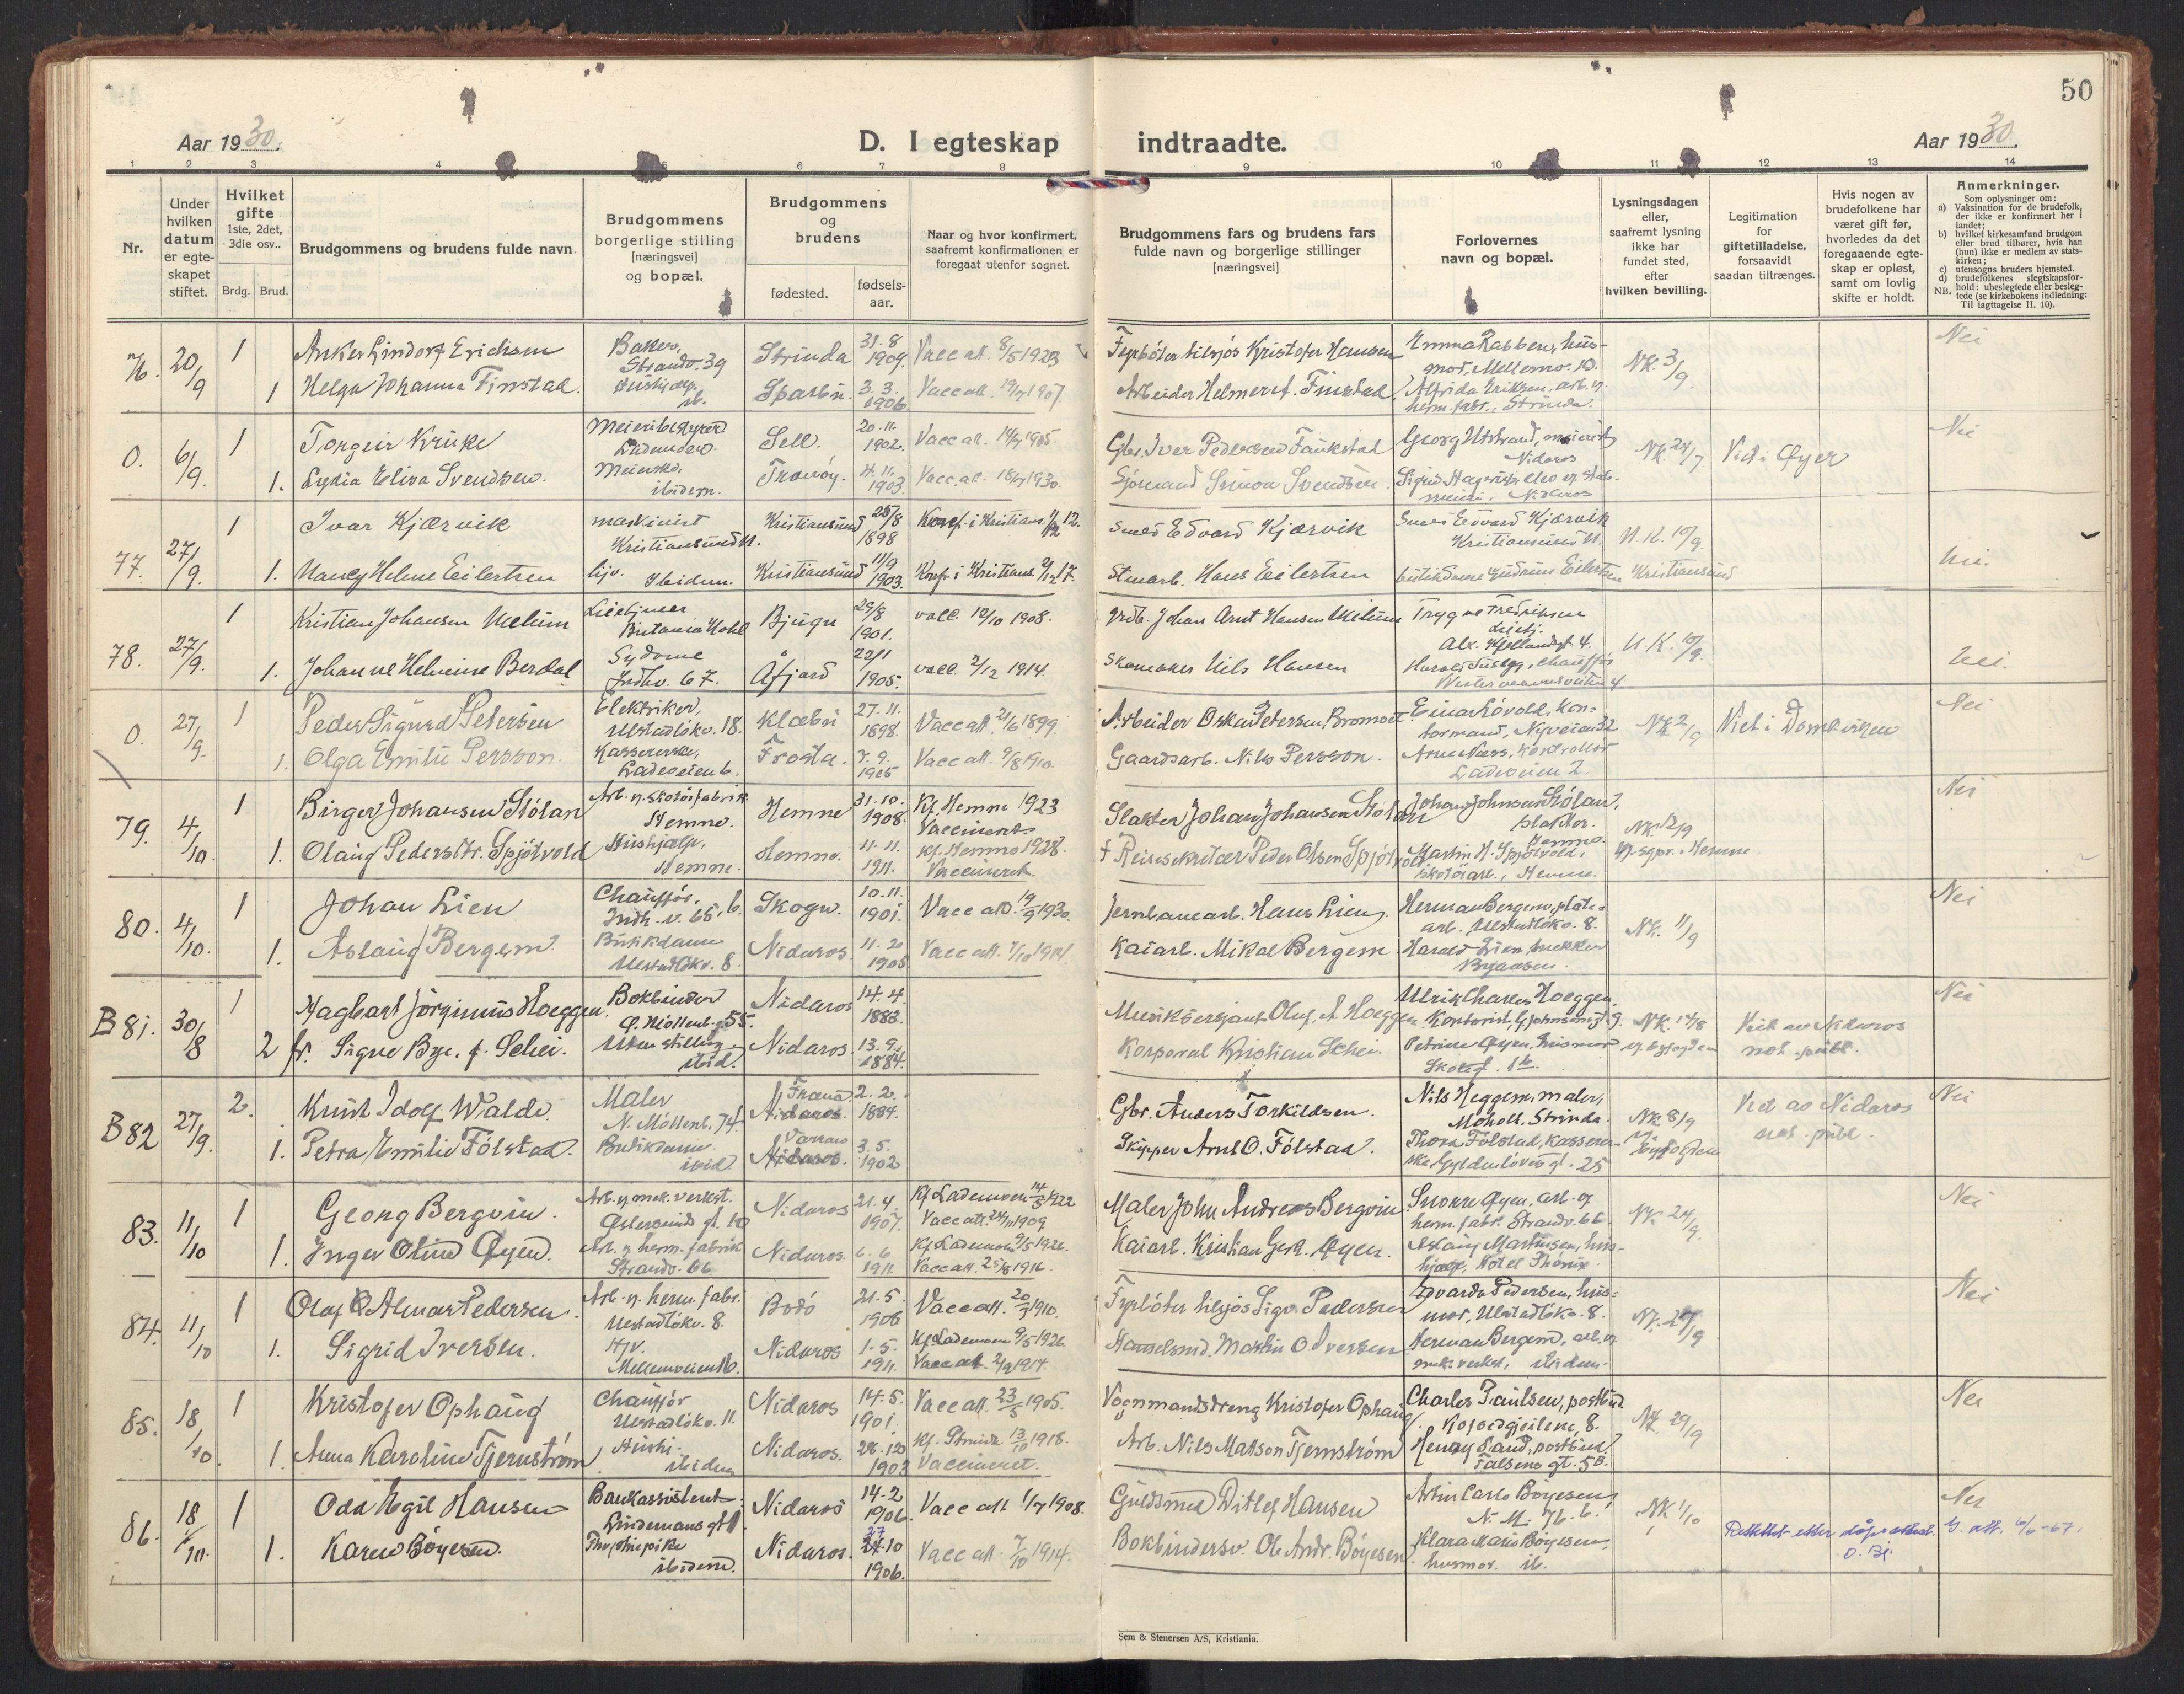 50
Aar 1930.
D. I egteskap indtraadte.
Aar 1930.
1 2 3 4 5 6 7 8 9 10 11 12 13 14
Nr.
Under hvilken datum er egteskapet stiftet.
Hvilket gifte 1ste, 2det, 3die osv..
Brdg. Brud.
Brudgommens og brudens fulde navn.
Brudgommens borgerlige stilling [næringsvei] og bopæl.
Brudgommens og brudens
fødested.
fødselsaar.
Naar og hvor konfirmert, saafremt konfirmationen er foregaat utenfor sognet.
Brudgommens fars og brudens fars fulde navn og borgerlige stillinger [næringsvei]
Forlovernes navn og bopæl.
Lysningsdagen eller, saafremt lysning ikke har fundet sted, efter hvilken bevilling.
Legitimation for giftetilladelse, forsaavidt saadan tiltrænges.
Hvis nogen av brudefolkene har været gift før, hvorledes da det foregaaende egteskap er opløst, samt om lovlig skifte er holdt.
Anmerkninger.
Som oplysninger om:
a) Vaksination for de brudefolk, der ikke er konfirmert her i landet;
b) hvilket kirkesamfund brudgom eller brud tilhører, hvis han (hun) ikke er medlem av statskirken;
c) utensogns bruders hjemsted.
d) brudefolkenes slegtskapsforhold: ubeslegtede eller beslegtede (se kirkebokens indledning: Til iagttagelse II. 10).
NB.
76. 20/9 1 Anker Lindorf Erichsen Baker, Strandv. 39 Strinda 31.8 1909 Vacc att. 8/5 1923 Fyrbøter tilsjøs Kristofer Hansen Emma Rabben, husmor, Mellemv. 10. NK. 3/9 Nei
1 Helga Johanne Finstad. Hushjelp. ib. Sparbu. 3.3. 1906 Vacc att. 1907 Arbeider Helmer Finstad Alfrida Eriksen, arb. v. herm. fabr., Strinda.
0. 6/9. 1 Torgeir Kruke Meieribestyrer Lademoen. Sell. 20.11. 1902. Vacc att. 1905. Gbr. Iver Pedersen Faukstad Georg Utstrand, Nidaros NK. 24/7 Viet i Øyer Nei
1. Lydia Elisa Svendsen. Meierske. ibidem. Tranöy. 4.11. 1903. Vacc. att. 1930. Sjömand Simon Svendsen Sigrid Nidaros
77. 27/9. 1 Ivar Kjærvik maskinist Kristiansund N. Kristiansund 25/8 1898 Konf. i Kristians. 12. Smed Edvard Kjærvik Smed Edvard Kjærvik Kristiansund N. N.K. 10/9.
1. Nancy Helene Eilertsen hjv. Ibidem. Kristiansund 11/9 1903. Konf. i Kristians. 17. Stuarb. Hans Eilertsen Gudrun Eilertsen Kristiansund Nei.
78. 27/9. 1 Kristian Johansen Melum Britania Hotel Bjugn 29/8 1901. vacc. 10/10 1908. Grdb. Johan Arnt Hansen Melum Trygve Fredriksen Alx. Kjellandsgt 4. N.K. 10/9.
1. Johanne Helmine Berdal Sydame Indhv. 67. Åfjord 22/11 1905. vacc. 2/12 1914. Skomaker Nils Hansen Harald chauffør Nei.
0. 27/9. 1 Peder Sigurd Petersen Elektriker, Ulstadløkv. 18. Klæbu 27.11. 1898. Vacc att. 21/6 1899. Arbeider Oskar Petersen, Bromset Einar Løvold, formand, Nyveien 32 NK 2/9 Viet i Domkirken Nei
1. Olga Emilie Persson. Kassererske, Ladeveien 6. Frosta. 7.9. 1905 Vacc att. 9/8 1910. Gaardsarb. Nils Persson. Arne Næss, Kontrollør Ladeveien 2.
79. 4/10. 1 Birger Johansen Stölan Arb. v. skotöifabrik Hemne. Hemne 31.10. 1908. Kf. Hemne 1923 Vaccinert Slakter Johan Johansen Stölan Johan Johansen Stölan, slakter. Hemne. NK. 12/9 Hemne. Nei
1. Olaug Pedersdtr. Spjötvold Hushjælp, Hemne. Hemne. 11.11. 1911. Kf. Hemne 1928. Vaccinert † Reisesekretær Peder Olsen Spjötvold Martin H. Spjötvold, skotöiarb., Hemne.
80. 4/10. 1 Johan Lien Chauffør, Indh. v. 65, b. Skogn. 10.11. 1901. Vacc att. 19/9 1930. Jernbanearb. Hans Lien. Herman Bergem, platearb. Ulstadløkv. 8. NK. 11/9 Nei
1. Aslaug Bergem. Butikkdame Ulstadløkv. 8. Nidaros. 11.2. 1905 Vacc att. 7/10 1914. Kaiarb. Mikal Bergem. Harald Lien, snekker Byaasen.
B 81. 30/8 1 Hagbart Jørginius Hoeggen. Bokbinder Ø. Møllenb. g. 55. Nidaros 14.4. 1883. Musiksersjant Oluf. A. Hoeggen Ulrik Charles Hoeggen. Kontorist, G. Johnsonsgt. 9. NK. 14/8 v. byfogden Viet av Nidaros not. publ. Nei
2 fr. Signe Bye, f. Schei. Uten stilling ibid. Nidaros. 13.9. 1884. Korporal Kristian Schei. Petrine Øyen, husmor
B 82 27/9. 2. Knut Idolf Walde Maler N. Møllenb. 74. Fræna Nidaros. 2.2. 1884. Gbr. Anders Torkildsen. Nils Heggem, maler, Moholt, Strinda. NK 8/9 v. byfogden Viet av Nidaros not. publ. Nei
1. Petra Emilie Fölstad. Butikdame ibid. Nidaros. 3.5. 1902 Skipper Arnt O. Fölstad. Thora Fölstad, kassererske, Gyldenlövesgt. 25
83. 11/10 1 Georg Bergvin. Arb. v. mek. verkst. Östersunds gt. 10 Nidaros 21.4. 1907. Kf. Lademoen 14/5 1922 Vacc att. 1909 Maler John Andreas Bergvin Snorre Øyen, arb. v. herm. fabr. Strandv. 66. NK 24/9. Nei
1. Inger Oline Øyen. Arb. v. herm. fabrik Strandv. 66 Nidaros. 6.6. 1911 Kf. Lademoen 9/5 1926. Vacc att. 1916. Kaiarb. Kristian Øyen. Aslaug Martinsen, hushjælp, Hotel Phønix.
84. 11/10 1 Olaf Almar Pedersen. Arb. v. herm. fabr. Ulstadløkv. 8. Bodö 21.5. 1906 Vacc att. 1910. Fyrbøter tilsjøs Sigv. Pedersen Edvarda Pedersen, husmor, Ulstadløkv. 8. NK. 24/9 Nei
1. Sigrid Iversen. Hjv. Mellemveien 16. Nidaros 1.5. 1911. Kf. Lademoen 9/5 1926 Vacc att. 1914. Handelsmd. Martin O. Iversen Herman Bergem, arb. v. mek. verkst. ibidem.
85. 18/10. 1 Kristofer Ophaug Chauffør Ulstadløkv. 11. Nidaros 14.5. 1901. Vacc att. 23/5 1905. Vognmandsdreng Kristofer Ophaug Charles Paulsen, postbud. Kofoedgjeilene, 8. NK. 29/9 Nei
1. Anna Karoline Tjernström Hushj. ibidem Nidaros. 28.12 1903 Kf. Strinda 13/10 1918. Vaccineret. Arb. Nils Matson Tjernström Henry Sand, postbud Falsens gt. 5B.
86. 18/10. 1 Odd Egil Hansen Bankassistent Lindemans gt 1. Nidaros 14.2 1906. Vacc att 1/7 1908. Guldsmed Ditlef Hansen Carlo Böyesen N. M. 76. b. NK 1/10 Rettelse etter dåpsattest. G. att. 6/6-67. O. Bj. Nei
1. Karen Böyesen. ibidem. Nidaros. 27.10 1906. Vacc att. 7/10 1914. Bokbindersv. Ole Andr. Böyesen Klara Marie Böyesen, husmor. ib.
Sem & Stenersen A/S, Kristiania.